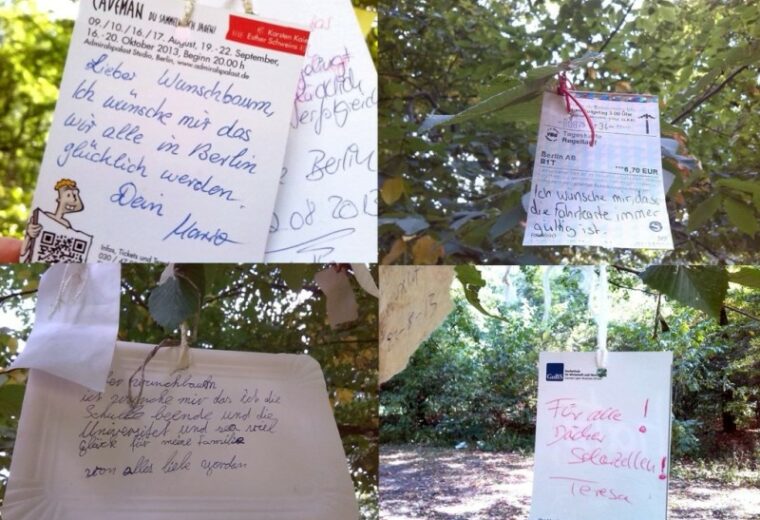 CAVEMAN DU SAMMELN. ICH JAGEN!
Karsten Kaie
Esther Schweins
09./10./16./17. August, 19. - 22. September,
16. - 20. Oktober 2013, Beginn 20.00 h
Admiralspalast Studio, Berlin, www.admiralspalast.de
Lieber Wunschbaum,
Ich wünsche mir das
wir alle in Berlin
glücklich werden.
Dein
Mario
Infos, Tickets und
030 /
Berlin
.08.2013
Tageskarte
Regeltarif
Berlin AB
BIT
***6,70 EUR
Ich wünsche mir, dass
die Fahrkarte immer
gültig ist.
S
ber wunchbaum
ich wunsche mir das ich die
Schulle beende und die
Universitet und so viel
glück für meine familie
von alles liebe yorden
-8-13
GuBS
Für alle!
Dächer
Solarzellen!
Teresa